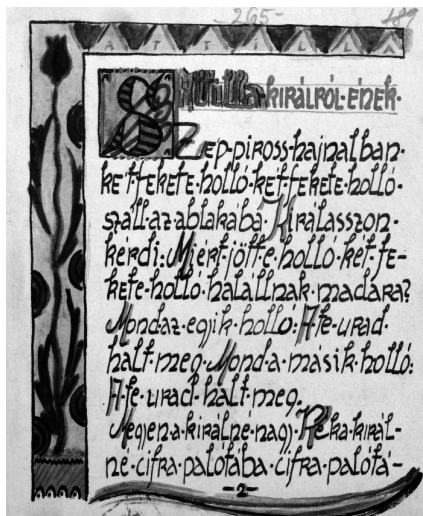 -265-
189
ATTILLA
Atilla·KIRÁLRÓL·ÉNEK·
Szép·piross·hajnalban·
két·fekete·holló·két·fekete·holló·
száll·az·ablakábá·Királasszon·
kérdi:·Miért·jötte·holló·két·fe-
kete·holló·halállnak·madara?
Mondaz·egjik·holló:·A·te·urad·
halt·meg·Mond·a·másik·holló:
A·te·urad·halt·meg.
Megjen·a·királné·nagj·Réka·királ-
né·cifra·palótába·cifra·palótá-
-2-